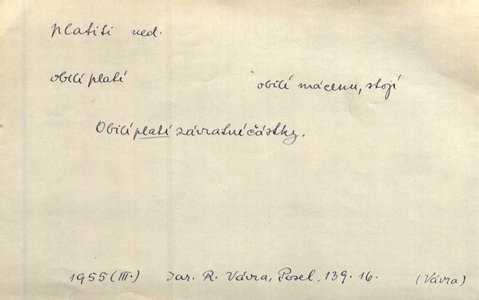 platiti ned.
obilí platí obilí má cenu, stojí
Obilí platí závratné částky.
1955 (III.) Jar. R. Vávra, Posel. 139.16. (Vávra)